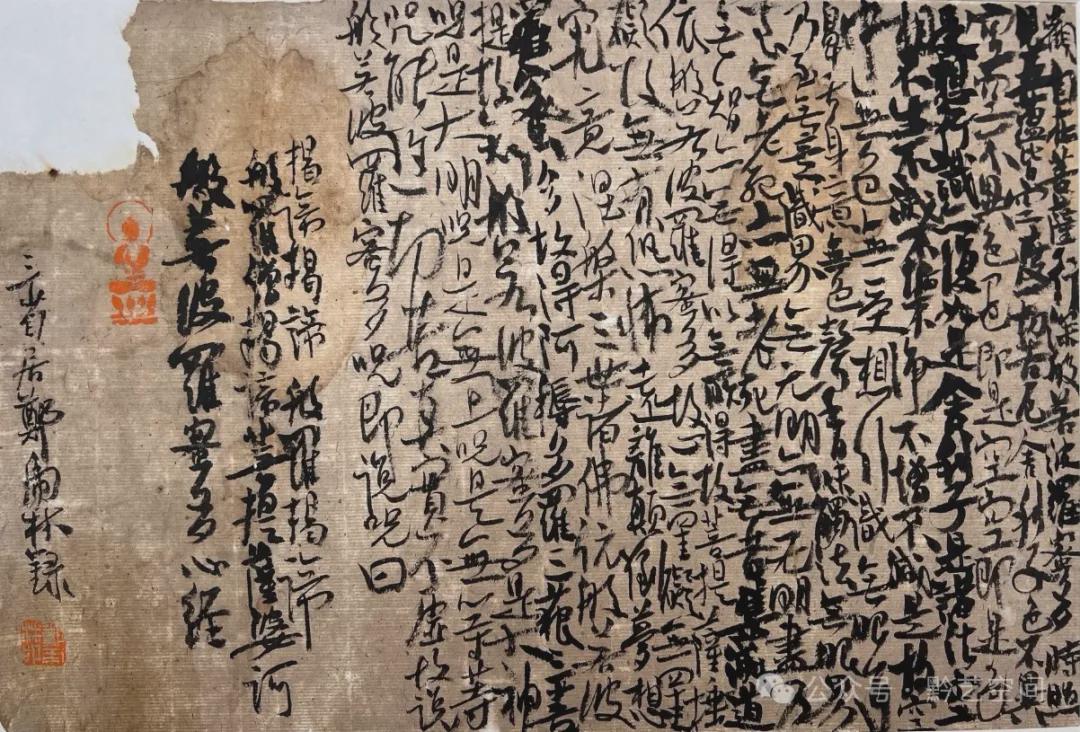 觀自在菩薩行深般若波羅蜜多時照
見五蘊皆空度一切苦厄舍利子色不異
空空不異色色即是空空即是色
受想行識亦復如是舍利子是諸法空
相不生不滅不垢不淨不增不減是故空
中無色無受想行識無眼耳
鼻舌身意無色聲香味觸法無眼界
乃至無意識界無無明亦無無明盡乃
至無老死亦無老死盡無苦集滅道
無智亦無得以無所得故菩提薩埵
依般若波羅蜜多故心無罣礙無罣
礙故無有恐怖遠離顛倒夢想
究竟涅槃三世諸佛依般若波
羅蜜多故得阿耨多羅三藐三菩
提故知般若波羅蜜多是大神
咒是大明咒是無上咒是無等等
咒能除一切苦真實不虛故說
般若波羅蜜多咒即說咒曰
揭諦揭諦 般羅揭諦
般羅僧揭諦菩提薩婆訶
般若波羅蜜多心經
居鄭林錄
公众号·黔艺空间